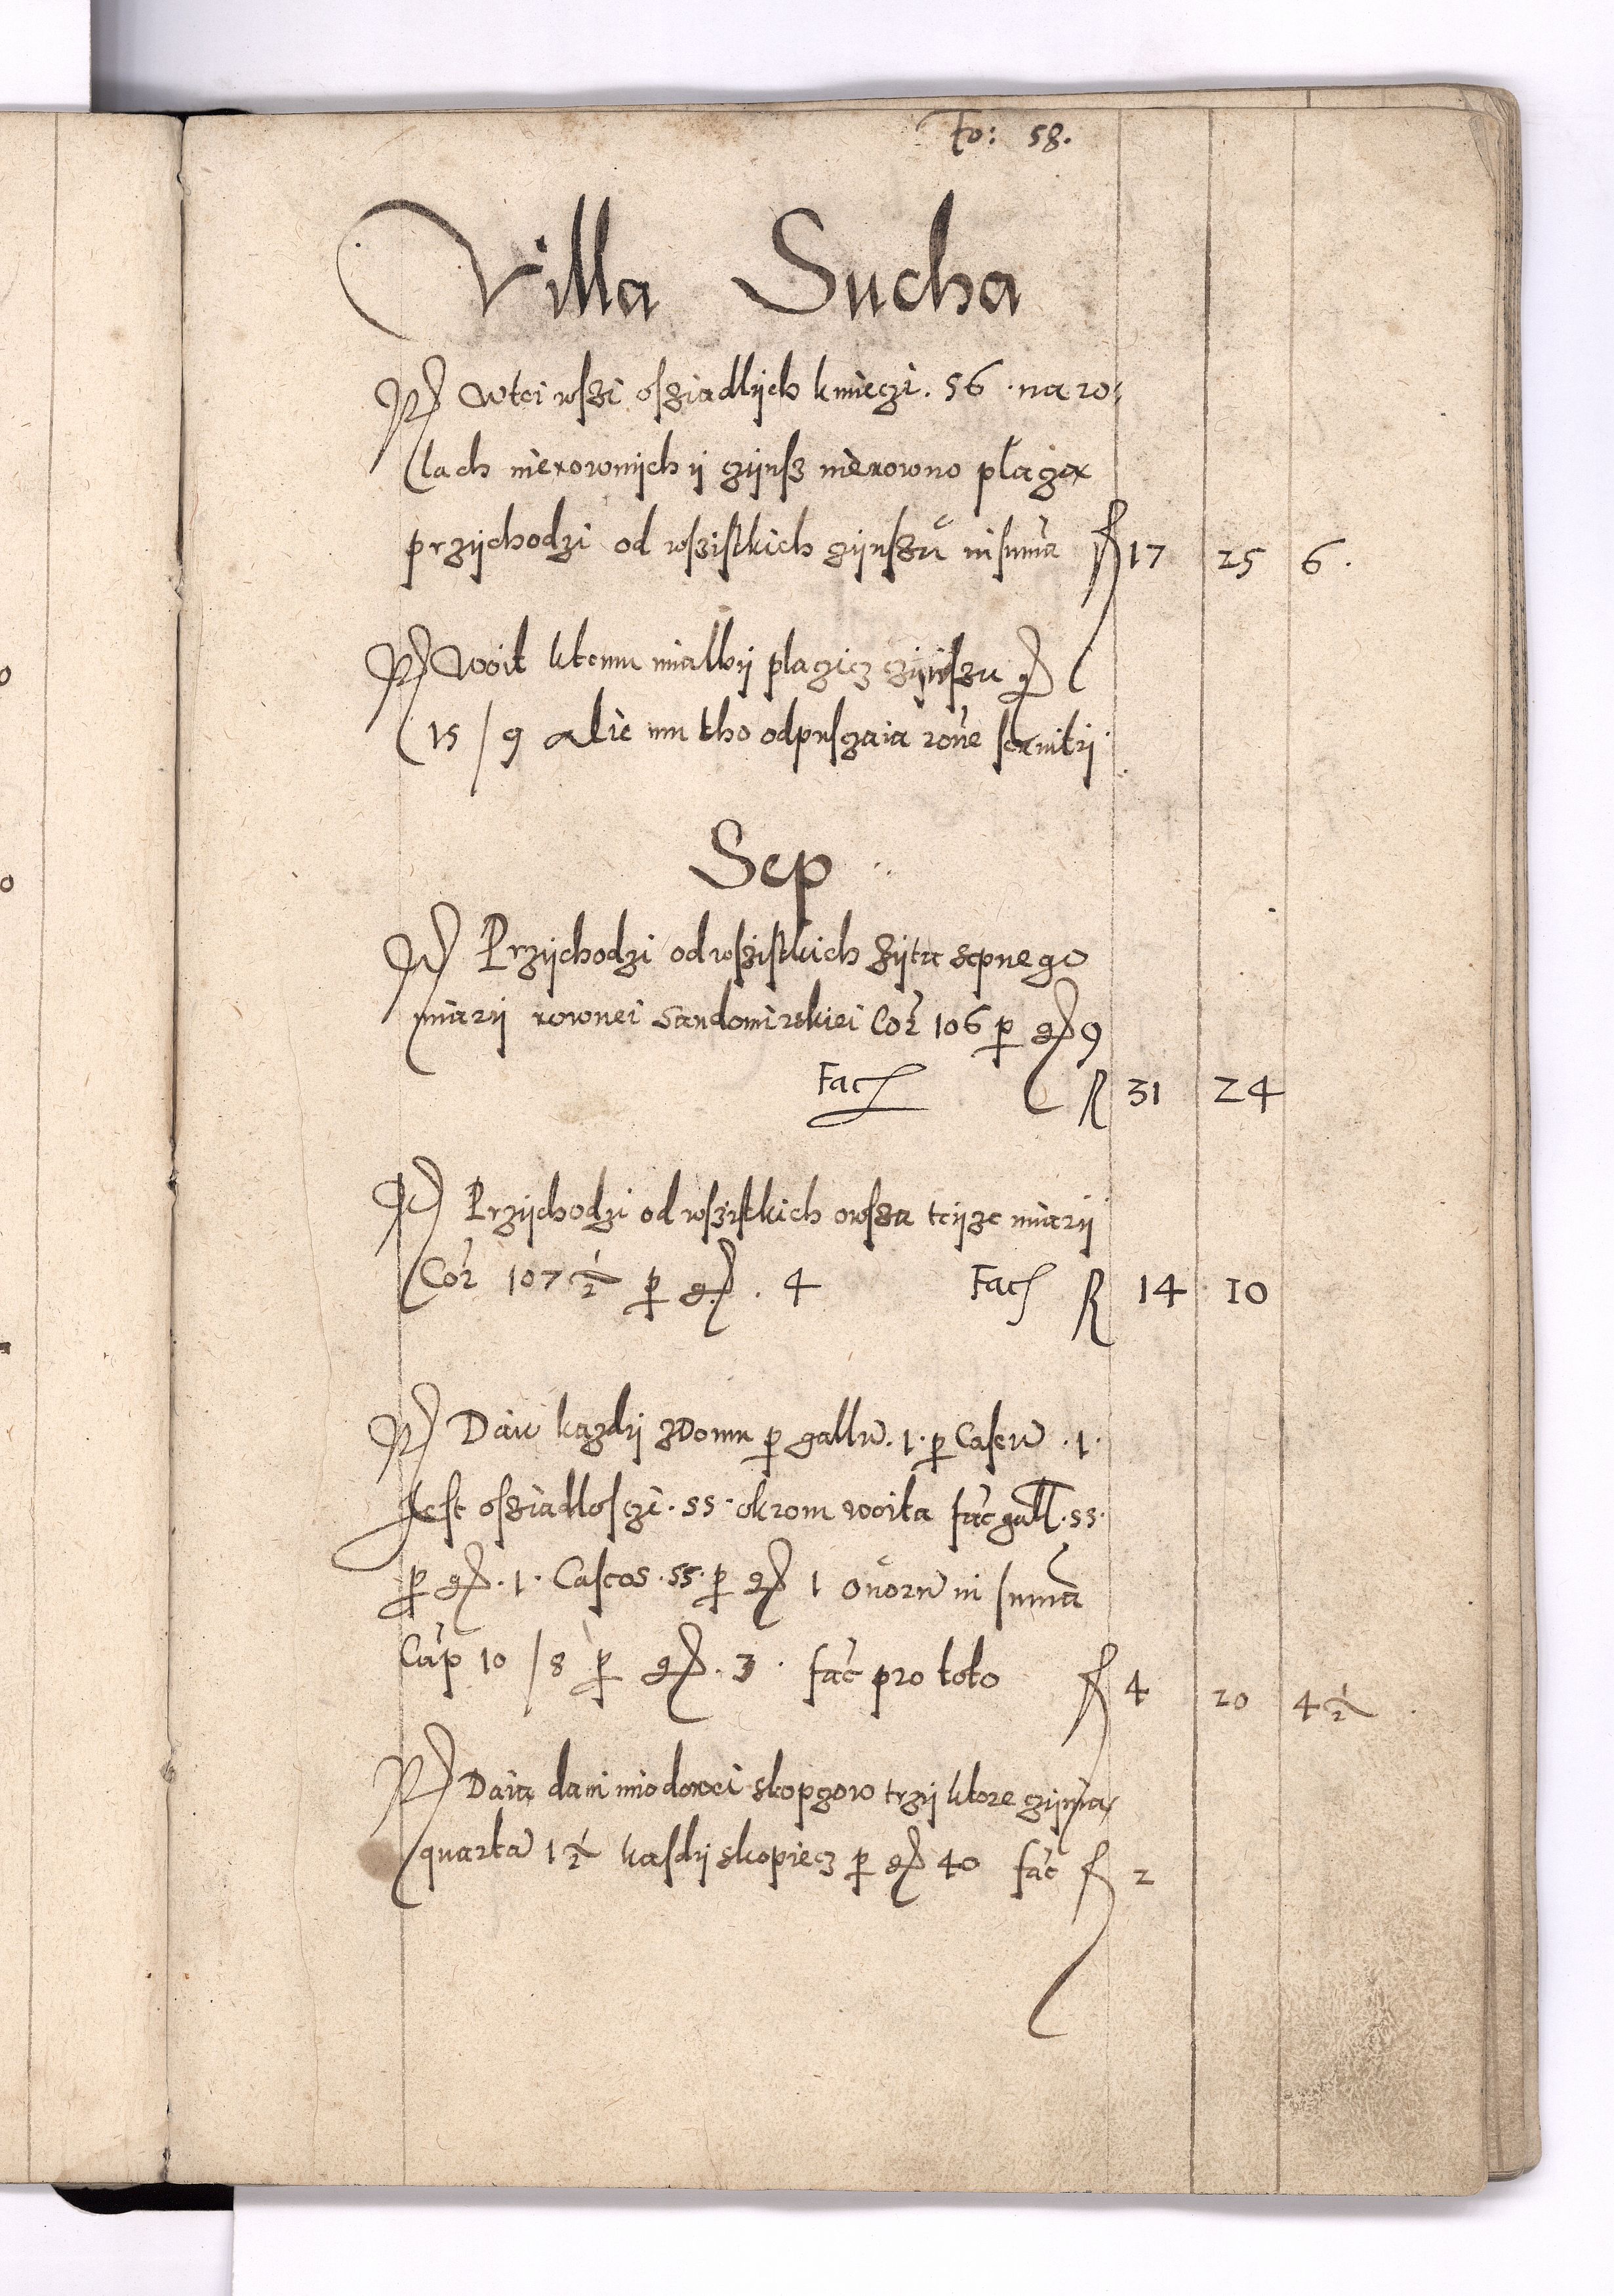 Fo: 58.
Villa Sucha
Wtei wszi osziadlych kmieczi. 56 . na ro:
lach nierownych y czynsz nierowno placza
przychodzi od wszistkich czynszu in suma f 17 25 6.
Woit ktemu mialby placzicz czynszu g
15 / 9 Alie mu tho odpusczaia róne servitij
Sep
Przychodzi od wszistkich żyta sepnego
miary rownei Sandomirskiei Cor 106 p g 9
Fac f 31 24
Przychodzi od wszistkich owsza teyze miary
Cor 107 ½ p g . 4 Fac f 14 10
Daie kazdy zdomu p gallu . 1 . p Caseu . 1 .
Jest osziadlosczi . 55 . okrom woita fac gall . 55 .
p g . 1 . Caseos . 55 . p g 1 ovoru in suma
Cap 10 / 8 p g . 3 . fac pro toto f 4 20 4 ½
Daia dani miodowei skopczow trzy ktore czynia
quarta 1 ½ kasdy skopiecz p g 40 fac f 2